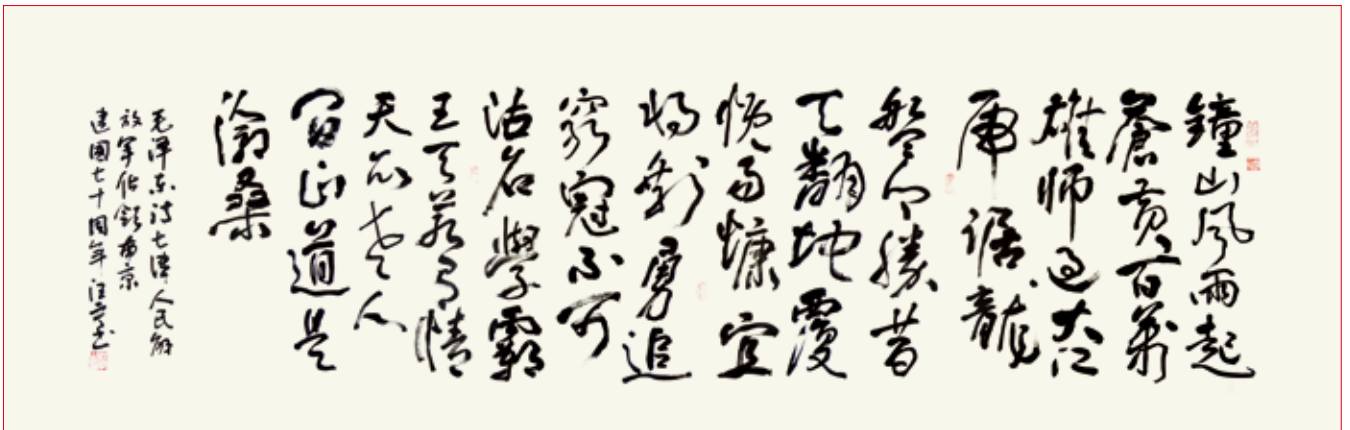 鐘山風雨起
蒼黄百萬
雄師過大江
虎踞龍
盤今勝昔
天翻地覆
慨而慷宜
將剩勇追
窮寇不可
沽名學霸
王天若有情
天亦老人
間正道是
滄桑
毛澤東詩七律人民解
放軍佔領南京
建國七十周年